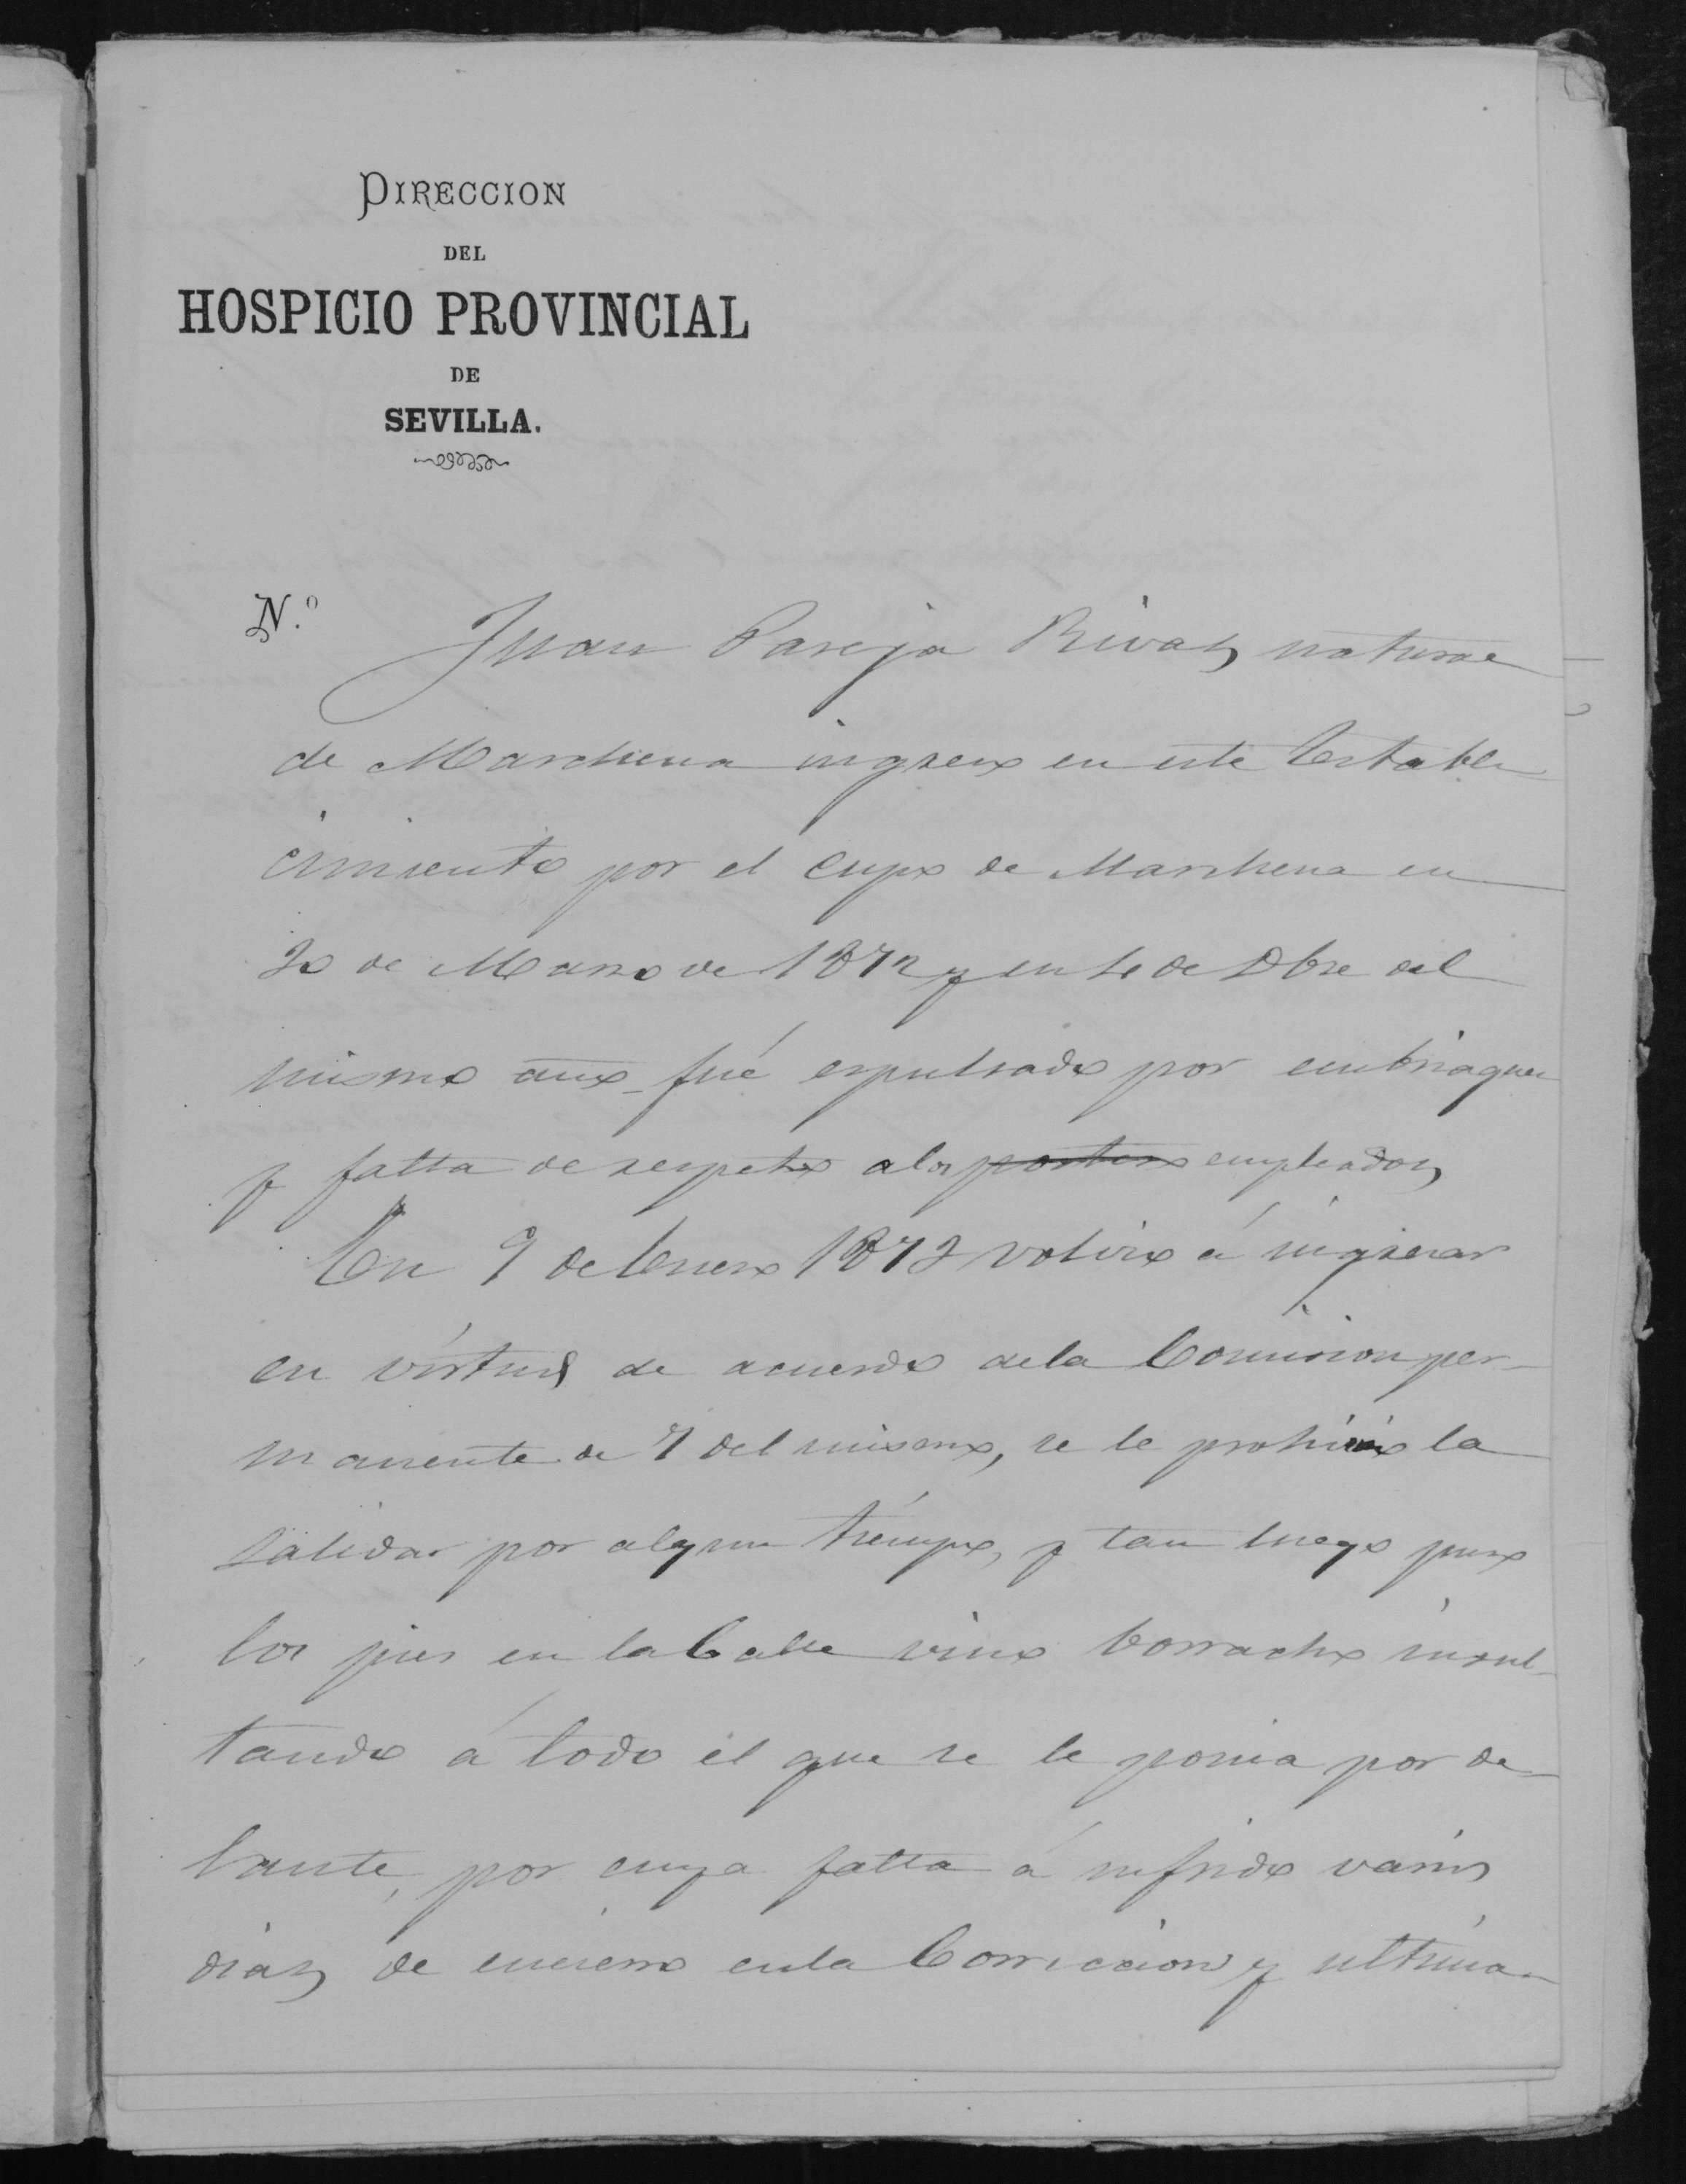 DIRECCION
DEL
HOSPICIO PROVINCIAL
DE
SEVILLA.
N.º
Juan Pareja Rivas, natural
de Marchena ingreso en este Estable
cimiento por el cupo de Marchena en
20 de Marzo de 1872 y en 4 de Dbre del
mismo año fué espulsado por embriaguez
y falta de respeto a los porteros empleados
En 9 de Enero 1873 volvio á ingresar
en virtud de acuerdo dela Comision per-
manente de 7 del mismo, se le prohivió la
salida por algun tiempo, y tan luego puso
los pies en la Calle vino borracho insul-
tando á todo el que se le ponia por de-
lante, por cuya falta á sufrido varios
dias de encierro enla Correccion y ultima-